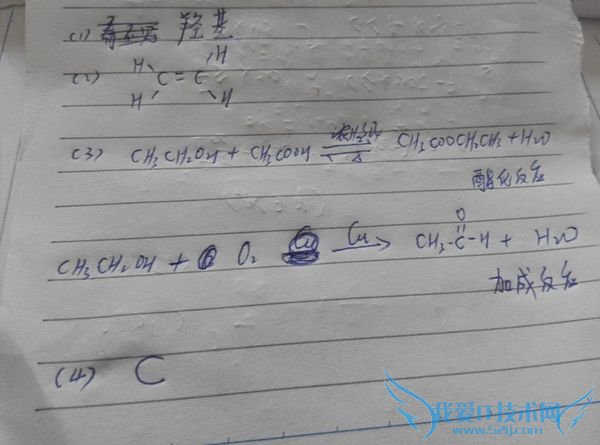 (1) 羟基
(2) H H C=C H H
(3) CH₃CH₂OH + CH₃COOH 浓H₂SO₄ ⇌ △ CH₃COOCH₂CH₃ + H₂O
酯化反应
CH₃CH₂OH + O₂ Cu → CH₃-C-H + H₂O
O
加成反应
(4) C
我爱IT技术网
www.52ij.com